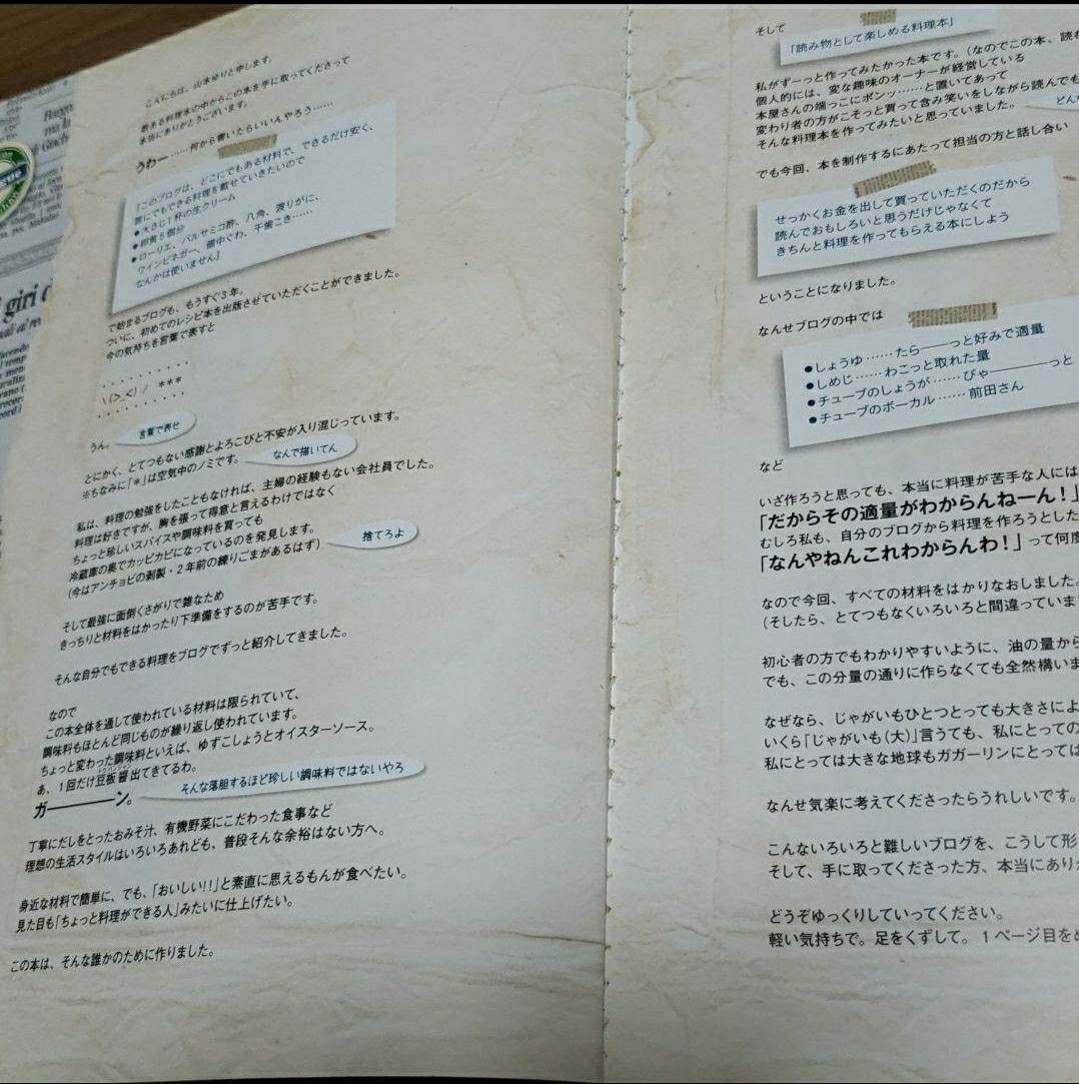 こんにちは、山本ゆりと申します。
数ある料理本の中からこの本を手に取ってくださって
本当にありがとうございます。
うわー……何から書いたらいいんやろう……
「このブログは、どこにでもある材料で、できるだけ安く、
誰にでもできる料理を載せていきたいので
●大さじ1杯の生クリーム
●卵黄5個分
●ローリエ、バルサミコ酢、八角、渡りがに、
ワインビネガー、備中ぐわ、千歯こき……
なんかは使いません」
で始まるブログも、もうすぐ3年。
ついに、初めてのレシピ本を出版させていただくことができました。
今の気持ちを言葉で表すと
\(>_<)/ ***
うん。
言葉で表せ
とにかく、とてつもない感謝とよろこびと不安が入り混じっています。
※ちなみに「*」は空気中のノミです。
なんで描いてん
私は、料理の勉強をしたこともなければ、主婦の経験もない会社員でした。
料理は好きですが、胸を張って得意と言えるわけではなく
ちょっと珍しいスパイスや調味料を買っても
冷蔵庫の奥でカッピカピになっているのを発見します。
(今はアンチョビの剥製・2年前の練りごまがあるはず)
捨てろよ
そして最強に面倒くさがりで雑なため
きっちりと材料をはかったり下準備をするのが苦手です。
そんな自分でもできる料理をブログでずっと紹介してきました。
なので
この本全体を通して使われている材料は限られていて、
調味料もほとんど同じものが繰り返し使われています。
ちょっと変わった調味料といえば、ゆずこしょうとオイスターソース。
あ、1回だけ豆板醤出てきてるわ。
トウバンジャン
ガ————ン。
そんな落胆するほど珍しい調味料ではないやろ
丁寧にだしをとったおみそ汁、有機野菜にこだわった食事など
理想の生活スタイルはいろいろあれども、普段そんな余裕はない方へ。
身近な材料で簡単に、でも、「おいしい!!」と素直に思えるもんが食べたい。
見た目も「ちょっと料理ができる人」みたいに仕上げたい。
この本は、そんな誰かのために作りました。
そして
「読み物として楽しめる料理本」
私がずーっと作ってみたかった本です。(なのでこの本、読む
個人的には、変な趣味のオーナーが経営している
本屋さんの端っこにポンッ……と置いてあって
変わり者の方がこそっと買って含み笑いをしながら読んでも
そんな料理本を作ってみたいと思っていました。
どん
でも今回、本を制作するにあたって担当の方と話し合い
せっかくお金を出して買っていただくのだから
読んでおもしろいと思うだけじゃなくて
きちんと料理を作ってもらえる本にしよう
ということになりました。
なんせブログの中では
●しょうゆ……たら——っと好みで適量
●しめじ……わこっと取れた量
●チューブのしょうが……びゃ————っと
●チューブのボーカル……前田さん
など
いざ作ろうと思っても、本当に料理が苦手な人には
「だからその適量がわからんねーん!」
むしろ私も、自分のブログから料理を作ろうとした
「なんやねんこれわからんわ!」って何度
なので今回、すべての材料をはかりなおしました。
(そしたら、とてつもなくいろいろと間違っていま
初心者の方でもわかりやすいように、油の量から
でも、この分量の通りに作らなくても全然構いま
なぜなら、じゃがいもひとつとっても大きさによ
いくら「じゃがいも(大)」言うても、私にとっての
私にとっては大きな地球もガガーリンにとっては
なんせ気楽に考えてくださったらうれしいです。
こんないろいろと難しいブログを、こうして形
そして、手に取ってくださった方、本当にあり
どうぞゆっくりしていってください。
軽い気持ちで。足をくずして。1ページ目を